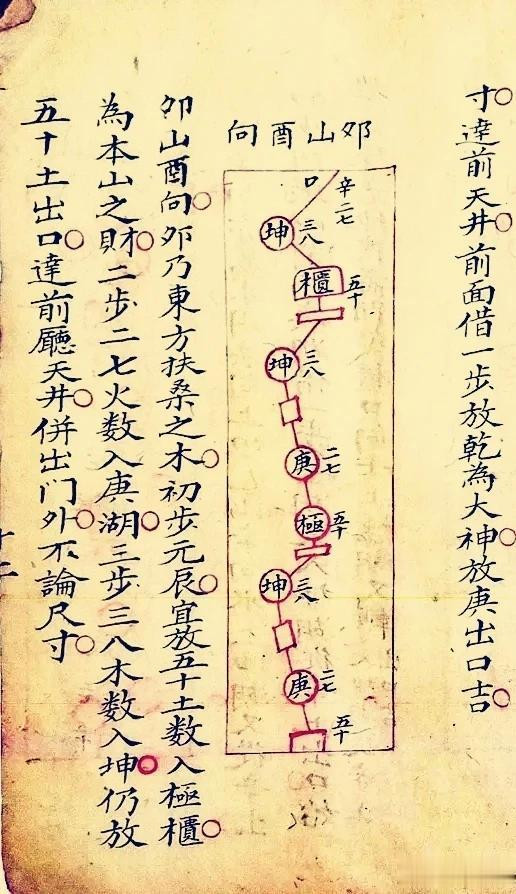 寸。達前天井。前面借一步放乾為大神。放庚出口吉。
夘山酉向
辛二七
口
坤
三八
櫃
五十
坤
三八
庚
二七
極
五十
坤
三八
庚
二七
五十
夘山酉向。夘乃東方扶桑之木。初步元辰。宜放五十土数入極櫃。
為本山之財。二步二七火数入庚湖。三步三八木数入坤。仍放
五十土出口。達前廳天井。併出门外。不論尺寸。